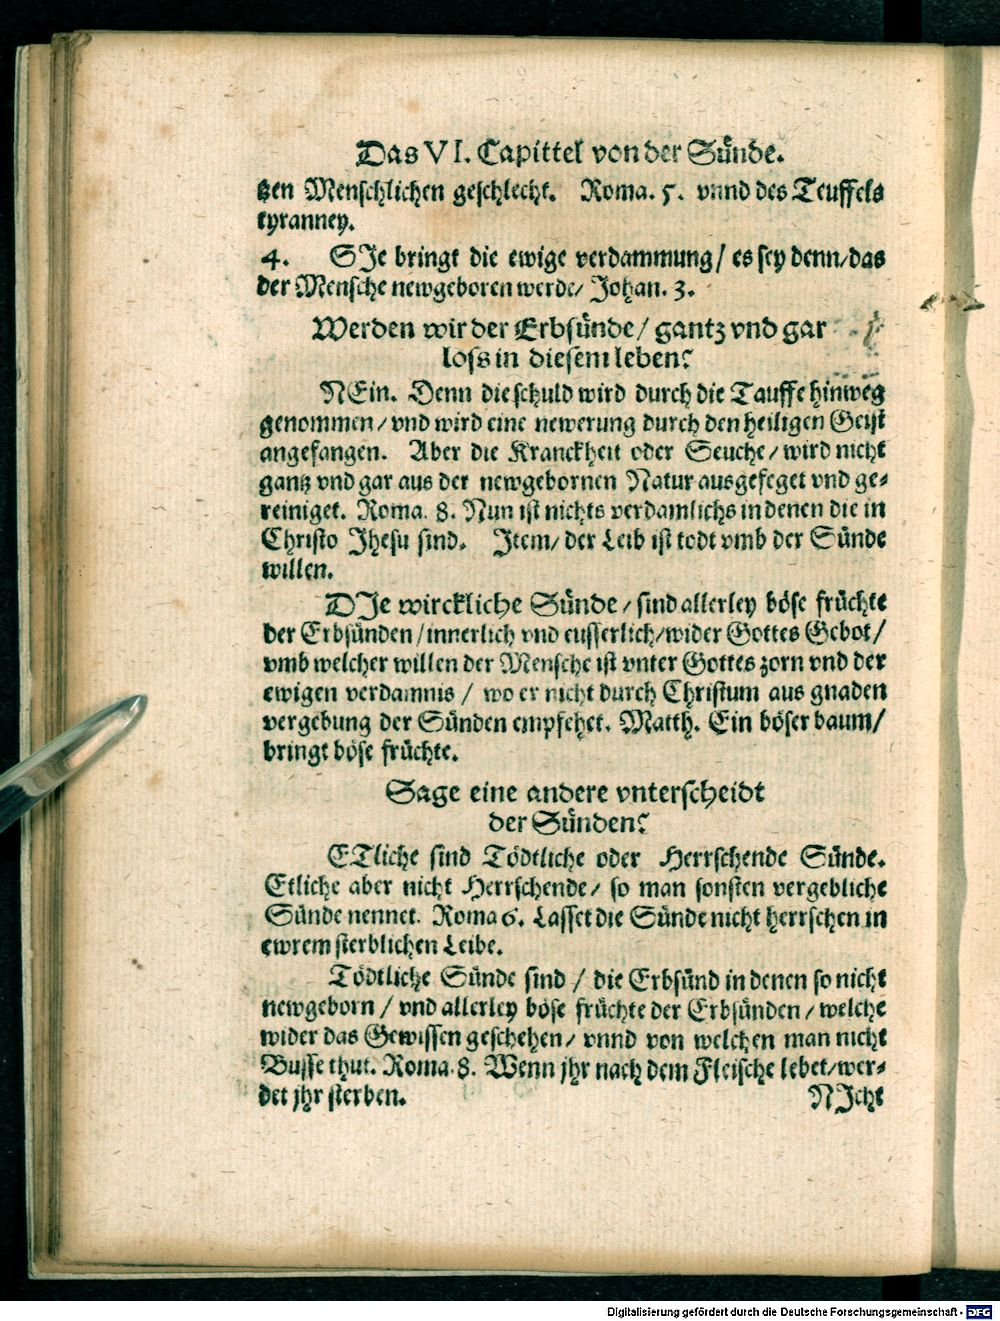 Das VI. Capittel von der Sünde.
tzen Menschlichen geschlecht. Roma. 5. vnnd des Teuffels
tyranney.
4. SIe bringt die ewige verdammung / es sey denn / das
der Mensche newgeboren werde / Johan. 3.
Werden wir der Erbsünde / gantz vnd gar
loss in diesem leben?
NEin. Denn die schuld wird durch die Tauffe hinweg
genommen / vnd wird eine newerung durch den heiligen Geist
angefangen. Aber die Kranckheit oder Seuche / wird nicht
gantz vnd gar aus der newgebornen Natur ausgefeget vnd ge-
reiniget. Roma. 8. Nun ist nichts verdamlichs in denen die in
Christo Jhesu sind. Item / der Leib ist todt vmb der Sünde
willen.
DIe wirckliche Sünde / sind allerley böse früchte
der Erbsünden / innerlich vnd eusserlich / wider Gottes Gebot /
vmb welcher willen der Mensche ist vnter Gottes zorn vnd der
ewigen verdamnis / wo er nicht durch Christum aus gnaden
vergebung der Sünden empfehet. Matth. Ein böser baum /
bringt böse früchte.
Sage eine andere vnterscheidt
der Sünden?
ETliche sind Tödtliche oder Herrschende Sünde.
Etliche aber nicht Herrschende / so man sonsten vergebliche
Sünde nennet. Roma 6. Lasset die Sünde nicht herrschen in
ewrem sterblichen Leibe.
Tödtliche Sünde sind / die Erbsünd in denen so nicht
newgeborn / vnd allerley böse früchte der Erbsünden / welche
wider das Gewissen geschehen / vnnd von welchen man nicht
Busse thut. Roma. 8. Wenn jhr nach dem Fleische lebet / wer-
det jhr sterben. NIcht
Digitalisierung gefördert durch die Deutsche Forschungsgemeinschaft - DFG